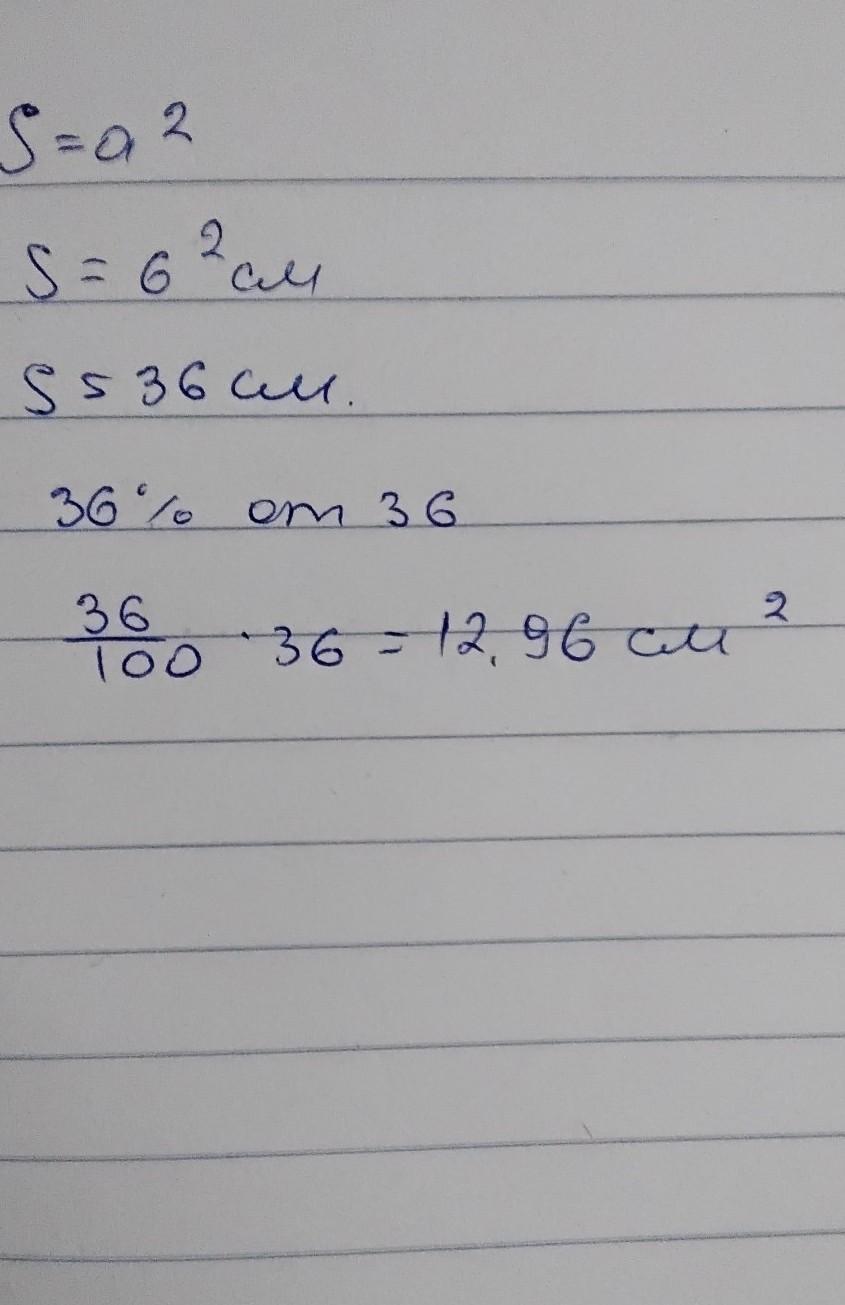 S = a²
S = 6² см
S = 36 см.
36% от 36
36/100 · 36 = 12,96 см²